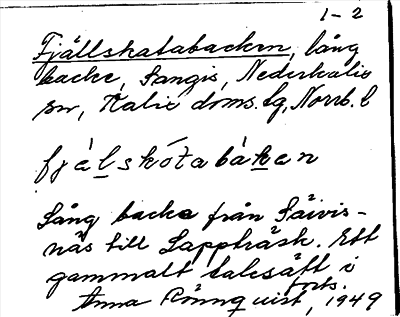 1-2
Fjällskatabacken, lång
backe, Sangis, Nederkalix
sn, Kalix doms.lg, Norrb. l
fjälskòtabáken
Lång backe från Säivis-
näs till Lappträsk. Ett
gammalt talesätt i
forts.
Anna Rönnquist, 1949